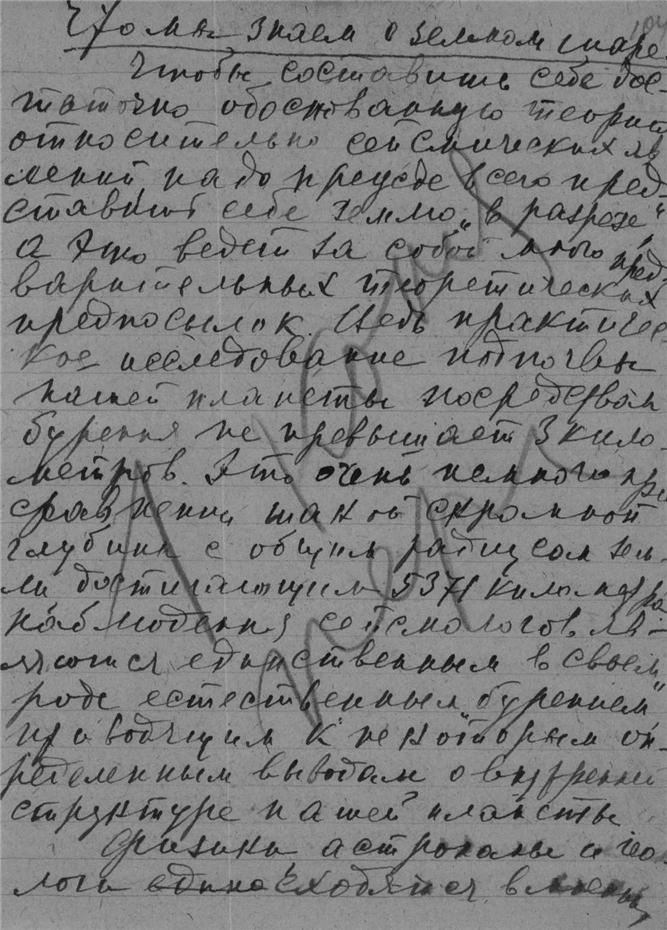 Что мы знаем о земном шаре.
Чтобы составить себе дос-
таточно обоснованную теорию
относительно сейсмических яв
лений надо прежде всего пред
ставить себе землю "в разрезе"
а это ведет за собой много пред
варительных теоретических
предпосылок. Ведь практичес
кое исследование подпочвы
нашей планеты посредством
бурения не превышает 3 кило
метров. Это очень немного при
сравнении такой скромной
глубины с общим радиусом зем-
ли достигающим 5371 километра
наблюдения сейсмологов яв-
ляются единственным в своем
роде естественным "бурением"
приводящим к некоторым оп-
ределенным выводам о внутренней
структуре нашей планеты
Физики астрономы и гео
логи сходятся в мнении